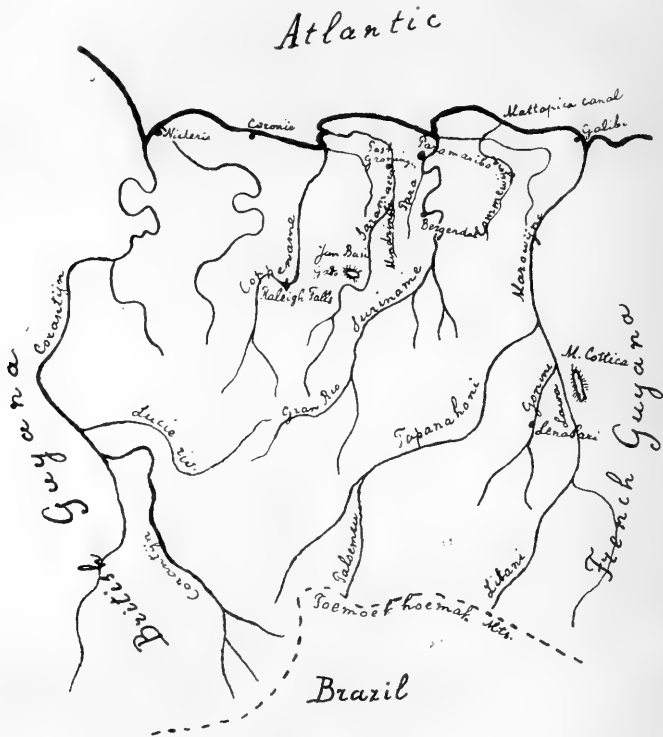 Atlantic
Mattapica canal
Galibi
Nickerie
Coronie
Post
Groningen
Paramaribo
Saramacca
Para
Commewijne
Bergendal
Coppename
Jan Basi
Gado
Raleigh Falls
Suriname
Marowijne
Corantijn
M. Cottica
Gonini
Lawa
Gran Rio
Lucie riv.
Tapanahoni
British Guyana
French Guyana
Corantijn
Paloemeu
Litani
Toemoek hoemak Mts.
Brazil